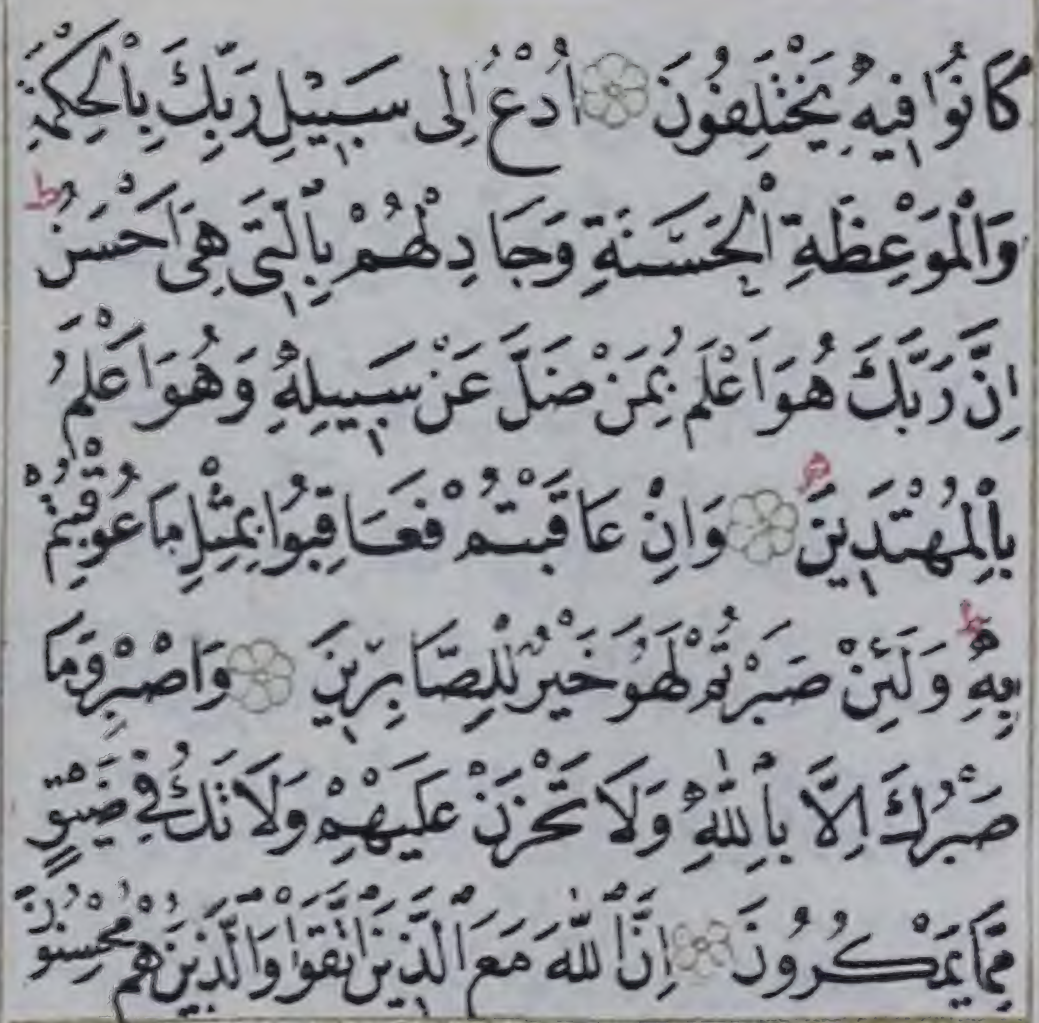 كَانُوا فِيهِ يَخْتَلِفُونَ ۝ اُدْعُ اِلٰى سَبِيلِ رَبِّكَ بِالْحِكْمَةِ
وَالْمَوْعِظَةِ الْحَسَنَةِ وَجَادِلْهُمْ بِالَّتِى هِىَ اَحْسَنُ ط
اِنَّ رَبَّكَ هُوَ اَعْلَمُ بِمَنْ ضَلَّ عَنْ سَبِيلِهِ وَهُوَ اَعْلَمُ
بِالْمُهْتَدِينَ ۝ وَاِنْ عَاقَبْتُمْ فَعَاقِبُوا بِمِثْلِ مَا عُوقِبْتُمْ
بِهِ ط وَلَئِنْ صَبَرْتُمْ لَهُوَ خَيْرٌ لِلصَّابِرِينَ ۝ وَاصْبِرْ وَمَا
صَبْرُكَ اِلَّا بِاللّٰهِ وَلَا تَحْزَنْ عَلَيْهِمْ وَلَا تَكُ فِى ضَيْقٍ
مِمَّا يَمْكُرُونَ ۝ اِنَّ اللّٰهَ مَعَ الَّذِينَ اتَّقَوْا وَالَّذِينَ هُمْ مُحْسِنُونَ